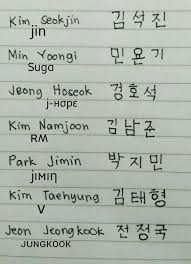 Kim Seokjin 김석진
jin
Min Yoongi 민윤기
Suga
Jeong Hoseok 정호석
j-Hσpε
Kim Namjoon 김남준
RM
Park Jimin 박지민
jIMIη
Kim Taehyung 김태형
V
Jeon Jeongkook 전정국
JUNGKOOK